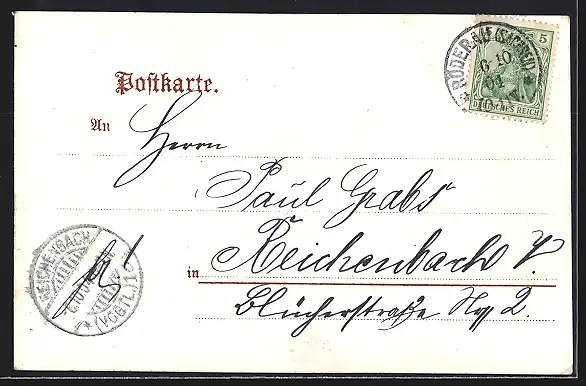 Postkarte.
RÖDERAU (SACHSEN)
6 10
04
5
DEUTSCHES REICH
An
Herrn
Paul Grabs
in Reichenbach V.
Blücherstraße No 2.
REICHENBACH
(VOGTL) 1